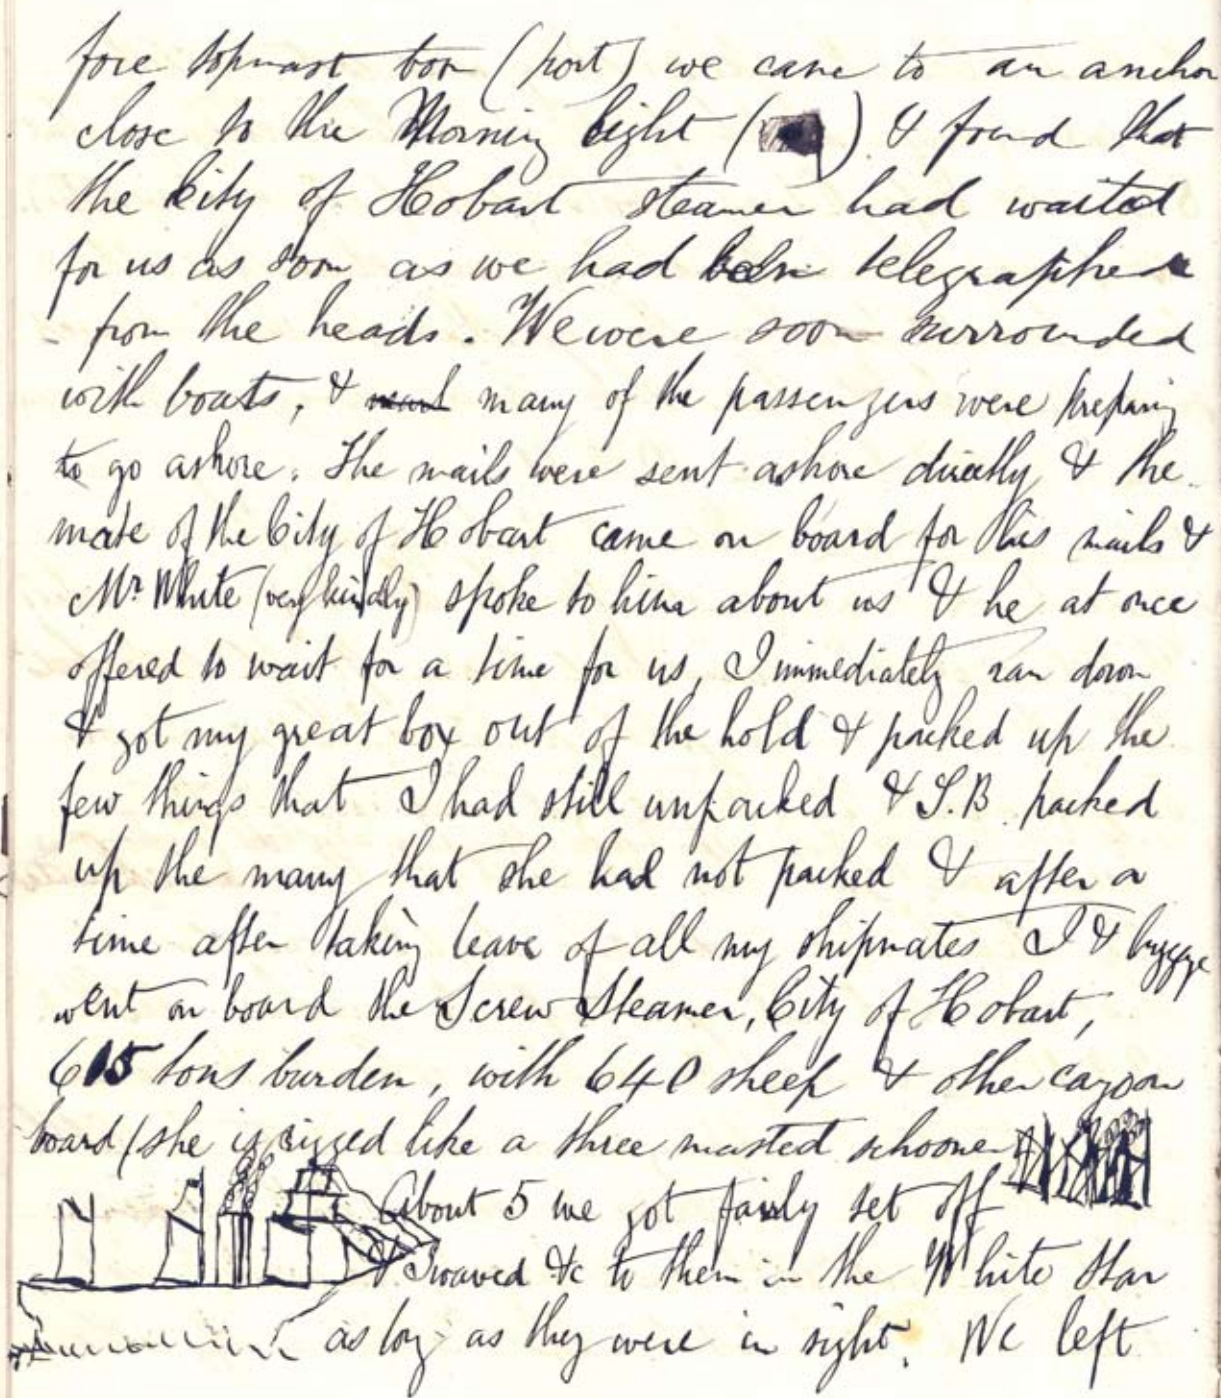 fore topmast boom (port) we came to an anchor
close to the Morning Light ( ) & found that
the City of Hobart steamer had waited
for us as soon as we had been telegraphed
from the heads. We were soon surrounded
with boats, & many of the passengers were preparing
to go ashore. The mails were sent ashore directly & the
mate of the City of Hobart came on board for his mails &
Mr White (very kindly) spoke to him about us & he at once
offered to wait for a time for us, I immediately ran down
& got my great box out of the hold & packed up the
few things that I had still unpacked & S.B. packed
up the many that she had not packed & after a
time after taking leave of all my shipmates I & luggage
went on board the Screw Steamer, City of Hobart,
615 tons burden, with 640 sheep & other cargo on
board (she is rigged like a three masted schooner
About 5 we got fairly set off
& I waved &c to them in the White Star
as long as they were in sight. We left